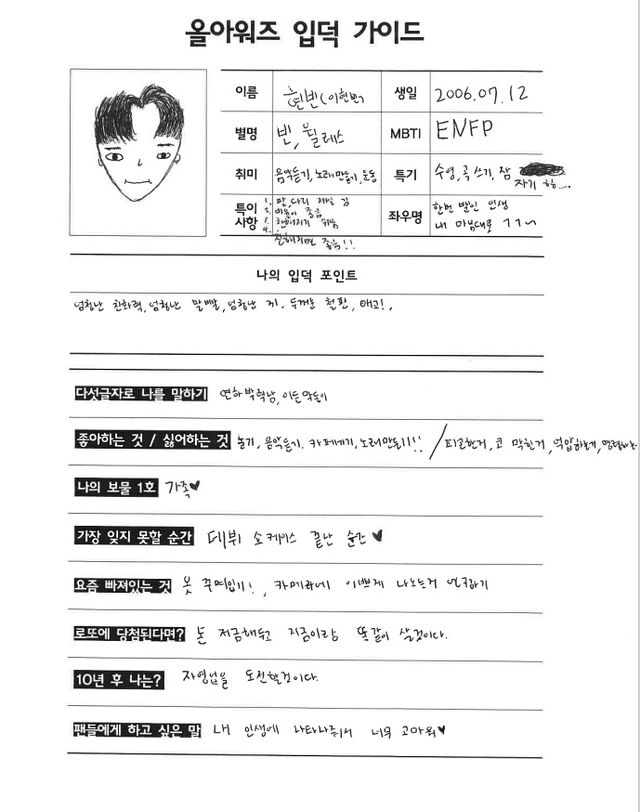 올아워즈 입덕 가이드
이름 현빈(이현빈) 생일 2006.07.12
별명 빈, 윌레스 MBTI ENFP
취미 음악듣기, 노래만들기, 운동 특기 수영, 곡쓰기, 잠
자기 힝....
특이사항 1. 팔, 다리 제일 김
2. 비율이 좋음
3. 친해지기 쉬움
4.
친해지면 좋음!!
좌우명 한번 뿐인 인생
내 마음대로 ㄱㄱ~
나의 입덕 포인트
엄청난 친화력, 엄청난 말빨, 엄청난 끼, 두꺼운 철판, 애교!,
다섯글자로 나를 말하기 연하박력남, 이든막둥이
좋아하는 것 / 싫어하는 것 놀기, 음악듣기, 카페가기, 노래만들기!! / 피곤한거, 코 막힌거, 억압하는거, 명령하는
나의 보물 1호 가족♥
가장 잊지 못할 순간 데뷔 쇼케이스 끝난 순간♥
요즘 빠져있는 것 옷 꾸며입기!, 카메라에 이쁘게 나오는거 연구하기
로또에 당첨된다면? 돈 저금해두고 지금이랑 똑같이 살것이다.
10년 후 나는? 자영업을 도전할것이다.
팬들에게 하고 싶은 말 내 인생에 나타나줘서 너무 고마워♥